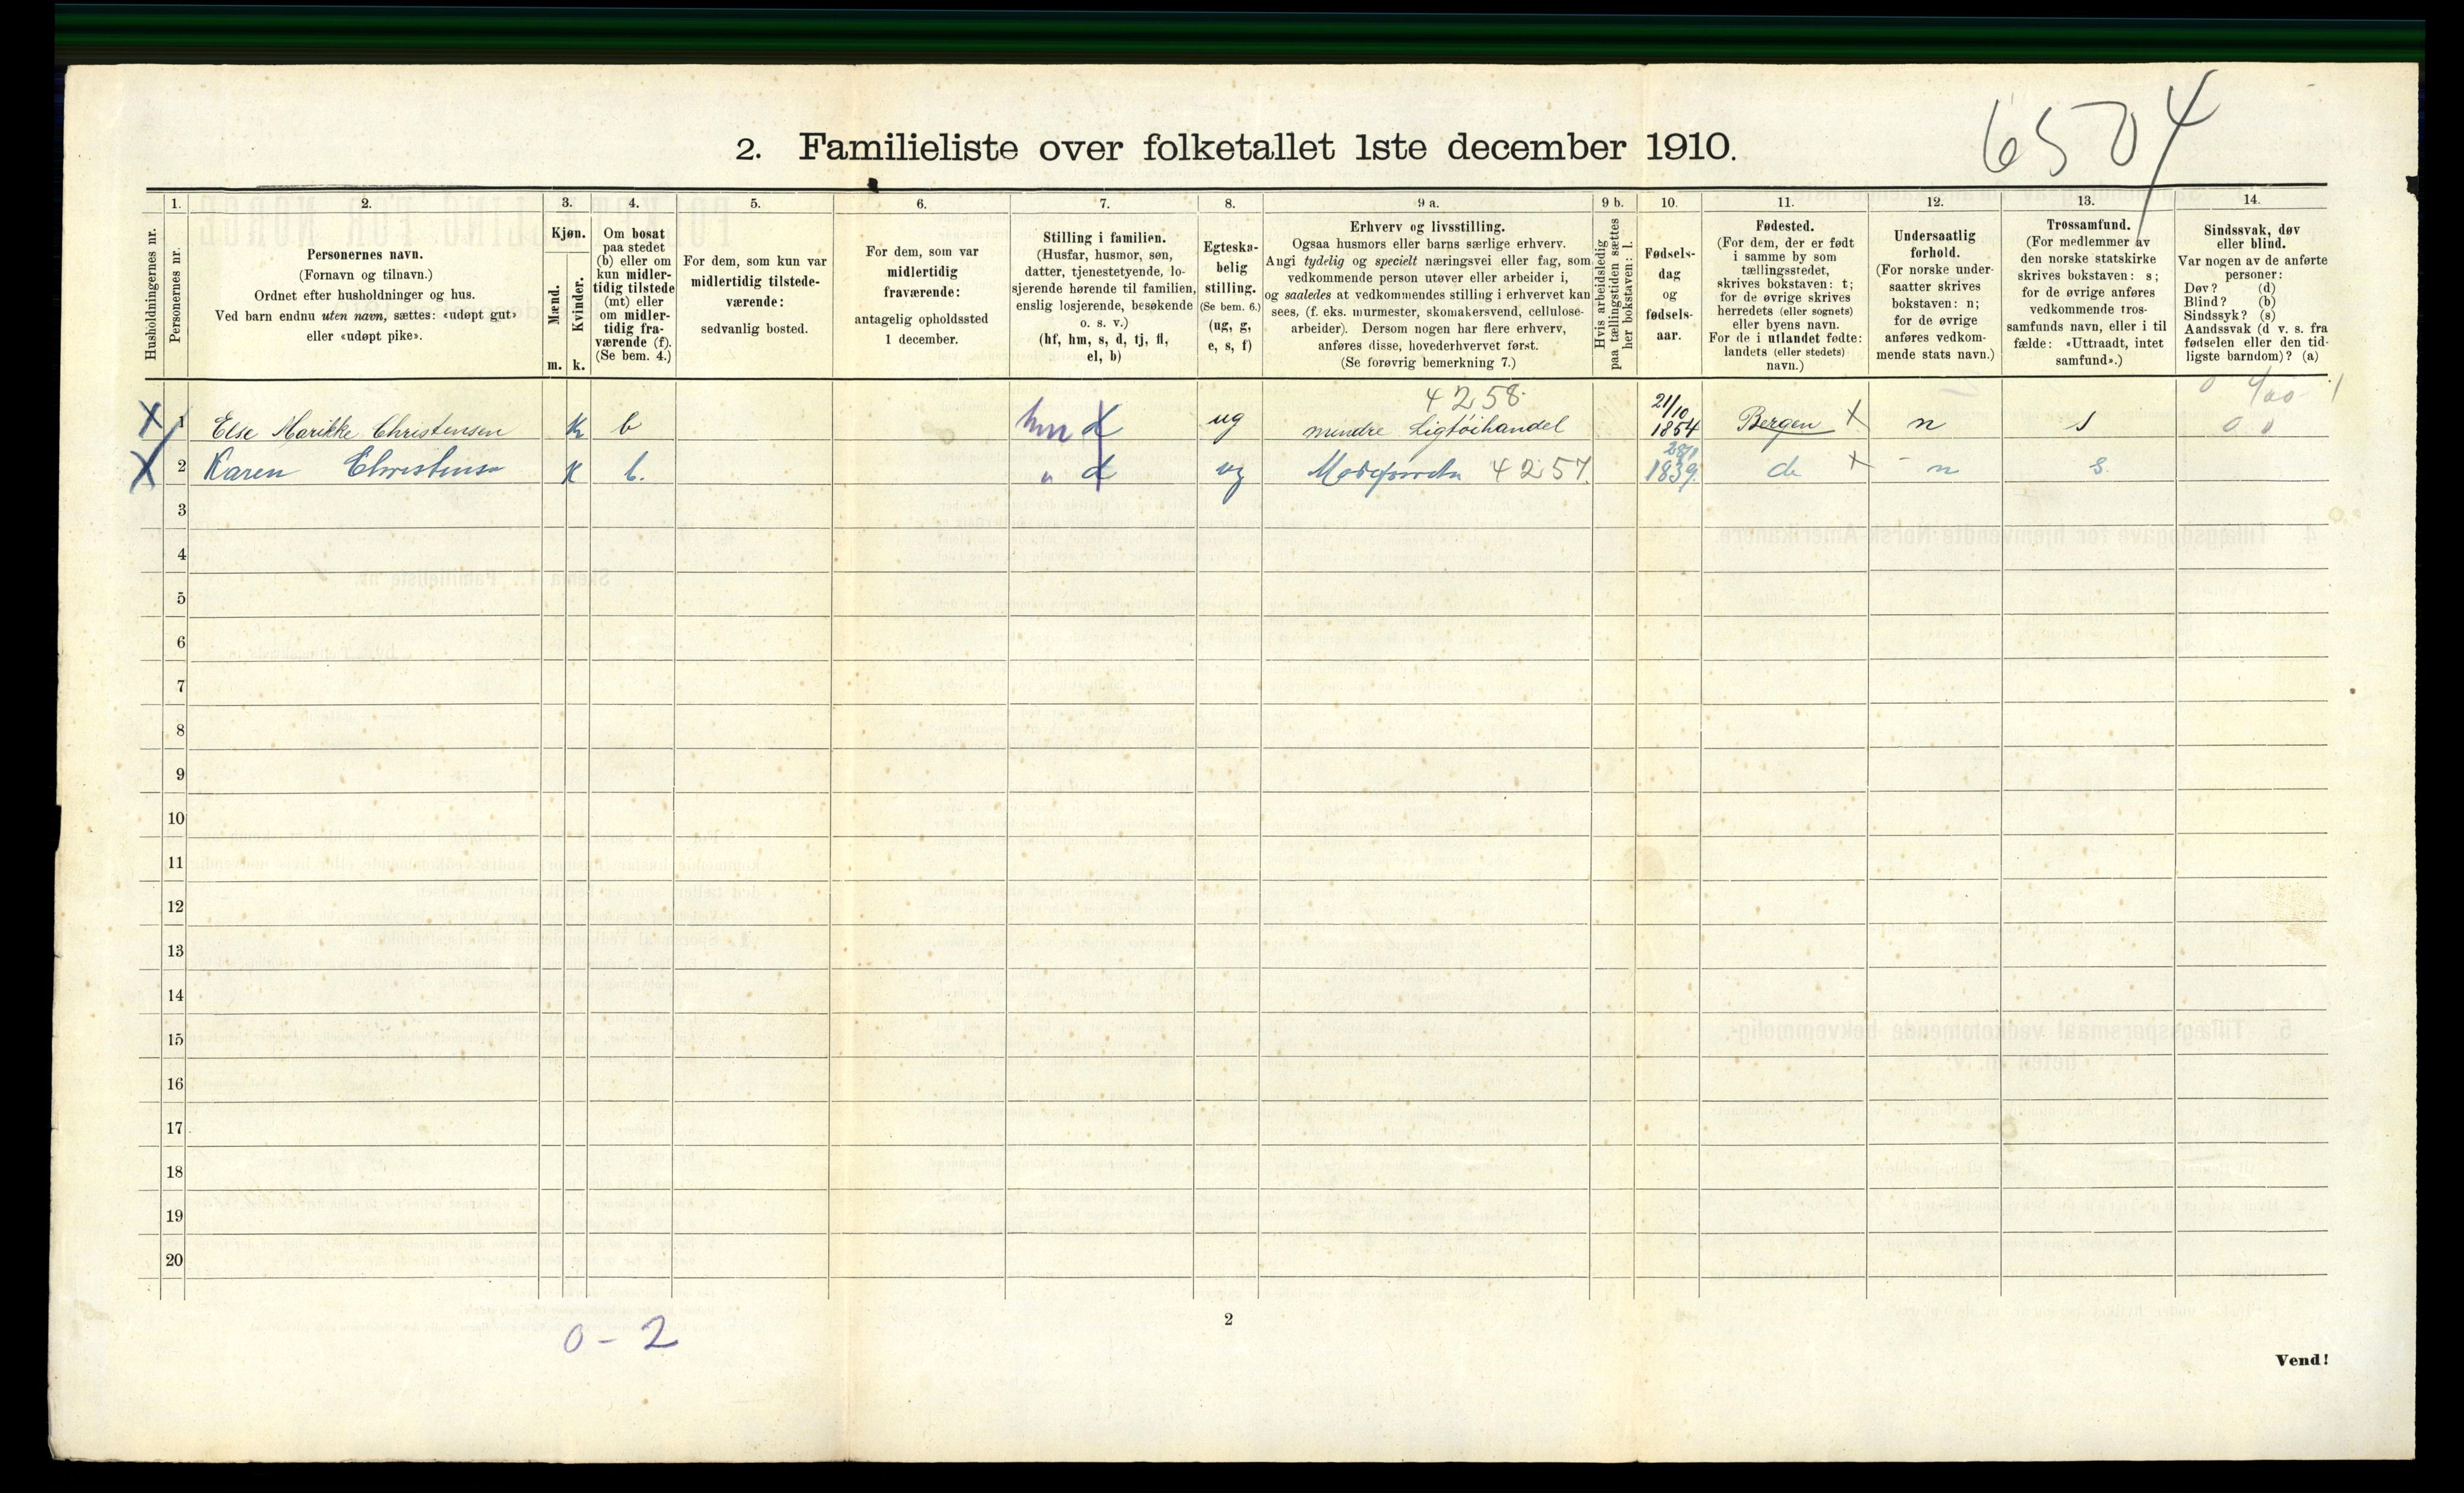 6504
2. Familieliste over folketallet 1ste december 1910.
Husholdningernes nr.
1.
Personernes nr.
2.
Personernes navn.
(Fornavn og tilnavn.)
Ordnet efter husholdninger og hus.
Ved barn endnu uten navn, sættes: «udøpt gut»
eller «udøpt pike».
3.
Kjøn.
Mænd.
Kvinder.
m. k.
4.
Om bosat
paa stedet
(b) eller om
kun midler-
tidig tilstede
(mt) eller
om midler-
tidig fra-
værende (f).
(Se bem. 4.)
5.
For dem, som kun var
midlertidig tilstede-
værende:
sedvanlig bosted.
6.
For dem, som var
midlertidig
fraværende:
antagelig opholdssted
1 december.
7.
Stilling i familien.
(Husfar, husmor, søn,
datter, tjenestetyende, lo-
sjerende hørende til familien,
enslig losjerende, besøkende
o. s. v.)
(hf, hm, s, d, tj, fl,
el, b)
8.
Egteska-
belig
stilling.
(Se bem. 6.)
(ug, g,
e, s, f)
9 a.
Erhverv og livsstilling.
Ogsaa husmors eller barns særlige erhverv.
Angi tydelig og specielt næringsvei eller fag, som
vedkommende person utøver eller arbeider i,
og saaledes at vedkommendes stilling i erhvervet kan
sees, (f. eks. murmester, skomakersvend, cellulose-
arbeider). Dersom nogen har flere erhverv,
anføres disse, hovederhvervet først.
(Se forøvrig bemerkning 7.)
9 b.
Hvis arbeidsledig
paa tællingstiden sættes
her bokstaven: l.
10.
Fødsels-
dag
og
fødsels-
aar.
11.
Fødested.
(For dem, der er født
i samme by som
tællingsstedet,
skrives bokstaven: t;
for de øvrige skrives
herredets (eller sognets)
eller byens navn.
For de i utlandet fødte:
landets (eller stedets)
navn.)
12.
Undersaatlig
forhold.
(For norske under-
saatter skrives
bokstaven: n;
for de øvrige
anføres vedkom-
mende stats navn.)
13.
Trossamfund.
(For medlemmer av
den norske statskirke
skrives bokstaven: s;
for de øvrige anføres
vedkommende tros-
samfunds navn, eller i til
fælde: «Uttraadt, intet
samfund».)
14.
Sindssvak, døv
eller blind.
Var nogen av de anførte
personer:
Døv? (d)
Blind? (b)
Sindssyk? (s)
Aandssvak (d v. s. fra
fødselen eller den tid-
ligste barndom)? (a)
4258
X 1 Else Marikke Christensen K b hm d ug mindre Ligtøihandel 21/10 1854 Bergen X n s 0 0
X 2 Karen Christensen K b. " d ug 4257. 1839. do X n s.
3
4
5
6
7
8
9
10
11
12
13
14
15
16
17
18
19
20
0 - 2
2
Vend!